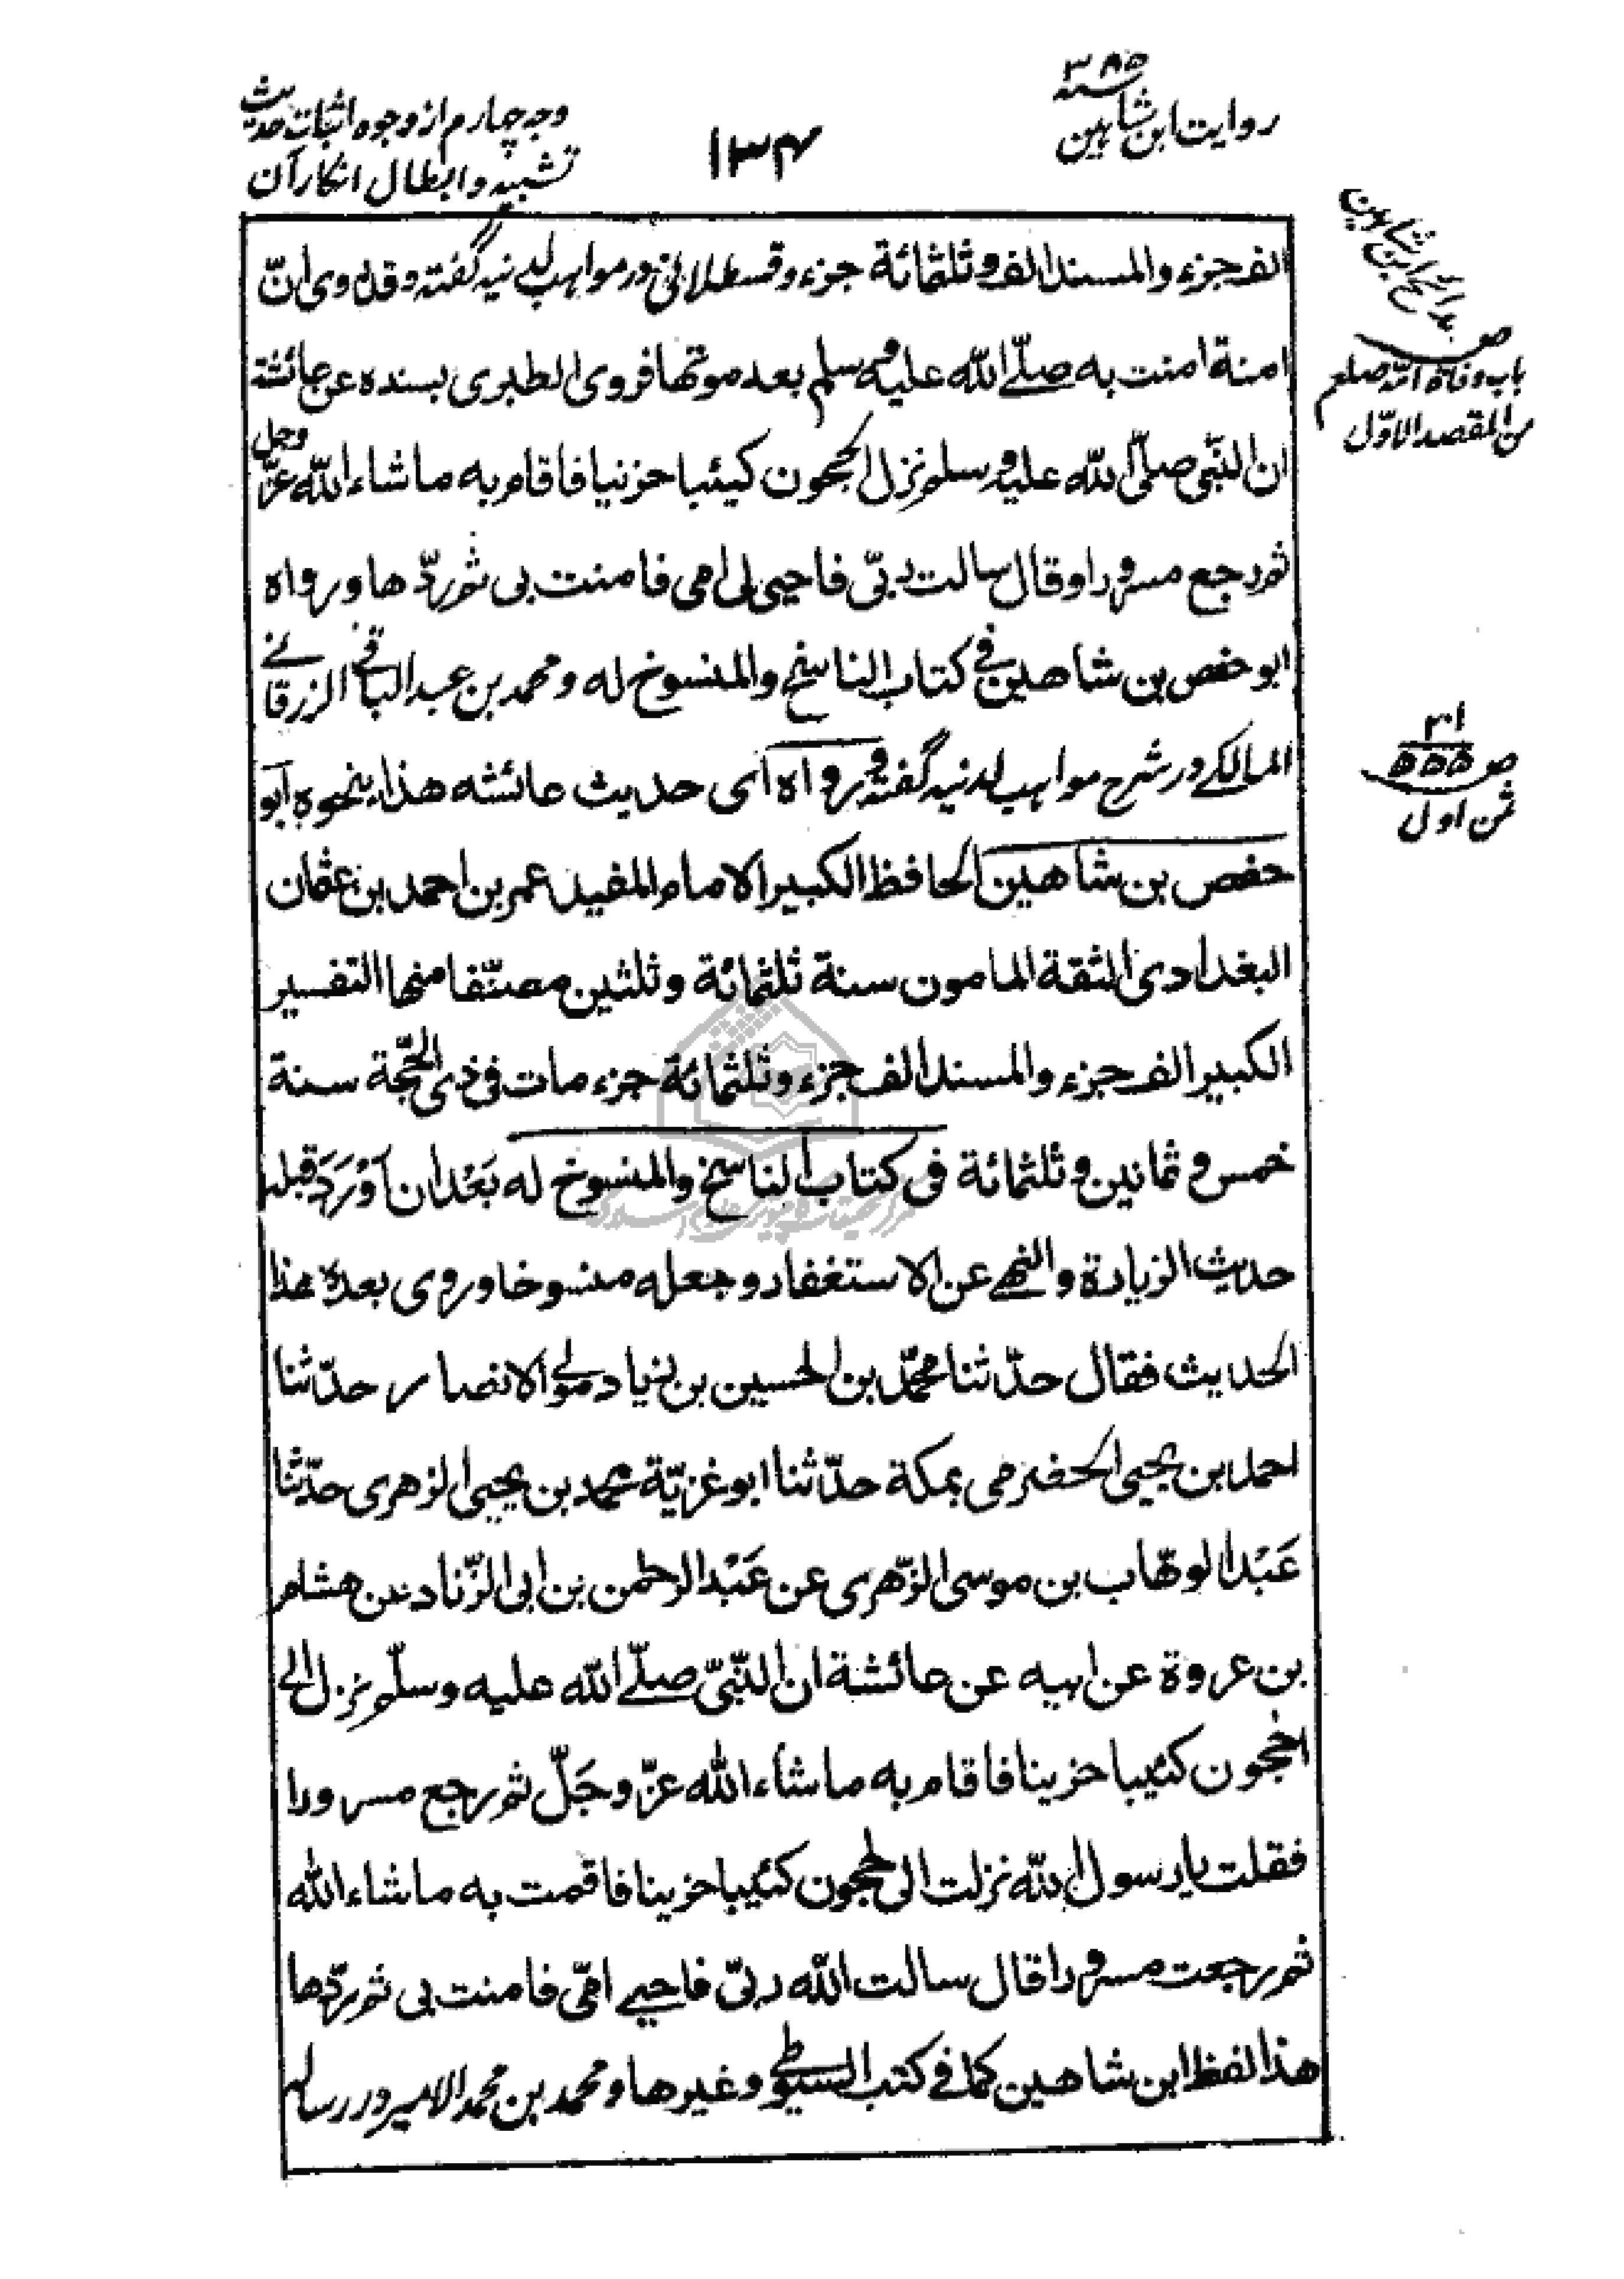 سنه ۳۸۵
روایت ابن شاهین
۱۳۴
وجه چهارم از وجوه اثبات حدیث
تشبیه و ابطال انکار آن
الف جزء والمسند الف وثلثمائة جزء وقسطلانی در مواهب لدنیه گفته وقد روی انّ
امنة امنت به صلّے الله علیه وسلم بعد موتها فروی الطبری بسنده عن عائشة
ان النّبی صلّی الله علیه وسلم نزل الحجون کیئبا حزنیا فاقام به ما شاء الله عزّ وجل
ثم رجع مسرورا وقال سالت ربّی فاحیی لی امی فامنت بی ثم ردّها ورواه
ابو حفص بن شاهین فی کتاب الناسخ والمنسوخ له ومحمد بن عبد الباقی الزرقانے
المالکے در شرح مواهب لدنیه گفته ورواه ای حدیث عائشه هذا بنحوه ابو
حفص بن شاهین الحافظ الکبیر الامام المفید عمر بن احمد بن عثمان
البغدادی الثقة المامون سنة ثلثمائة وثلثین مصنّفا منها التفسیر
الکبیر الف جزء والمسند الف جزء وثلثمائة جزء مات فی ذی الحجّة سنة
خمس وثمانین وثلثمائة فی کتاب الناسخ والمنسوخ له بَعْدَ ان اَوْرَدَ قبله
حدیث الزیادة والنهے عن الاستغفار وجعله منسوخا وروی بعده هذا
الحدیث فقال حدّثنا محمّد بن الحسین بن زیاد مولے الانصار حدّثنا
احمد بن یحیی الحضرمی بمکة حدّثنا ابو غزیّة محمد بن یحیی الزهری حدّثنا
عَبْد الوهّاب بن موسی الزّهری عن عَبْد الرحمن بن ابی الزّناد عن هشام
بن عروة عن ابیه عن عائشة ان النّبیّ صلّے الله علیه وسلّم نزل الی
الحجون کئیبا حزینا فاقام به ما شاء الله عزّ وجَلّ ثم رجع مسرورا
فقلت یا رسول الله نزلت الی الحجون کئیبا حزینا فاقمت به ما شاء الله
ثم رجعت مسرورا قال سالت الله ربّی فاحیے امّی فامنت بی ثم ردّها
هذا لفظ ابن شاهین کما فے کتب السیوطے وغیرها ومحمد بن محمد الامیر در رساله
باب وفاة امّه صلعم
من المقصد الاوّل
۳۱
ص ۵۵۵
ثمن اول